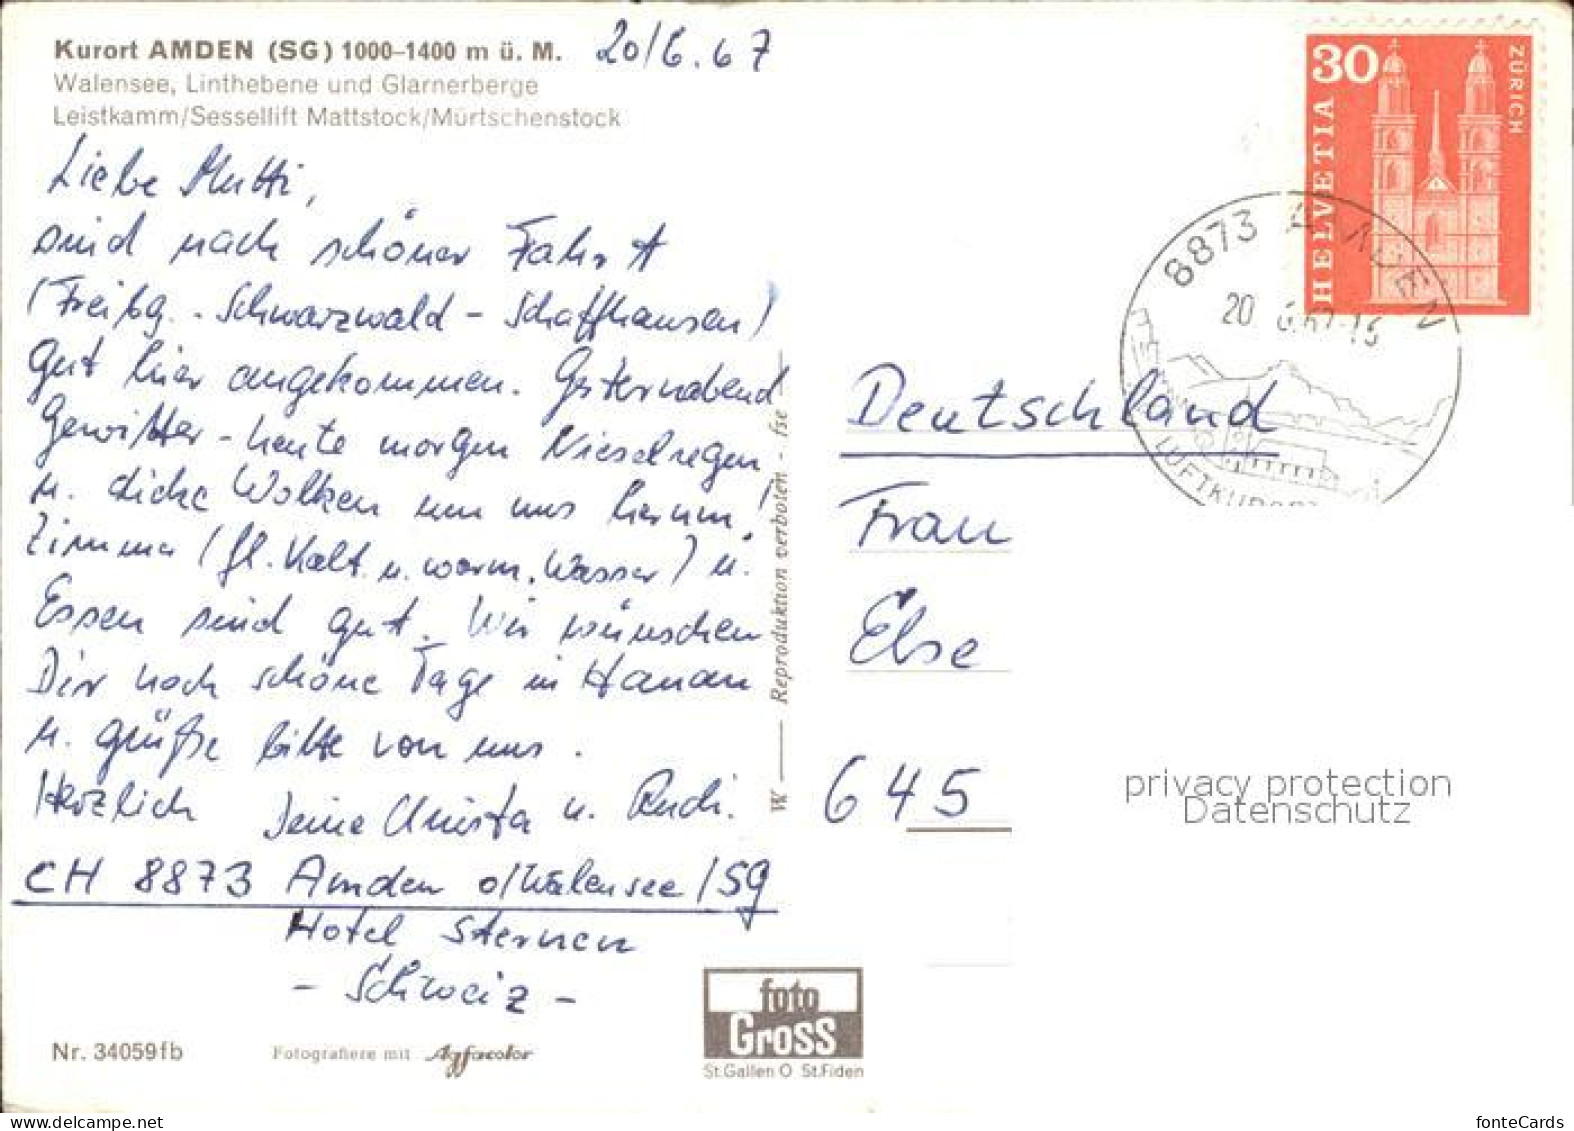 Kurort AMDEN (SG) 1000–1400 m ü. M.
20/6.67
Walensee, Linthebene und Glarnerberge
Leistkamm/Sessellift Mattstock/Mürtschenstock
Liebe Mutti,
sind nach schöner Fahrt
(Freibg. - Schwarzwald - Schaffhausen)
gut hier angekommen. Gesternabend
Gewitter - heute morgen Nieselregen
u. dicke Wolken um uns herum!
Zimmer (fl. Kalt. u. warm. Wasser) u.
Essen sind gut. Wir wünschen
Dir noch schöne Tage in Hanau
u. grüße bitte von uns.
Herzlich Deine Christa u. Rudi.
CH 8873 Amden o/Walensee/SG
Hotel Sternen
- Schweiz -
Nr. 34059fb
Fotografiere mit Agfacolor
foto
Gross
St.Gallen O St.Fiden
W — Reproduktion verboten - fse
30
HELVETIA
ZÜRICH
8873 AMDEN
20.6.67-15
LUFTKURORT
Deutschland
Frau
Else
645
privacy protection
Datenschutz
fonteCards